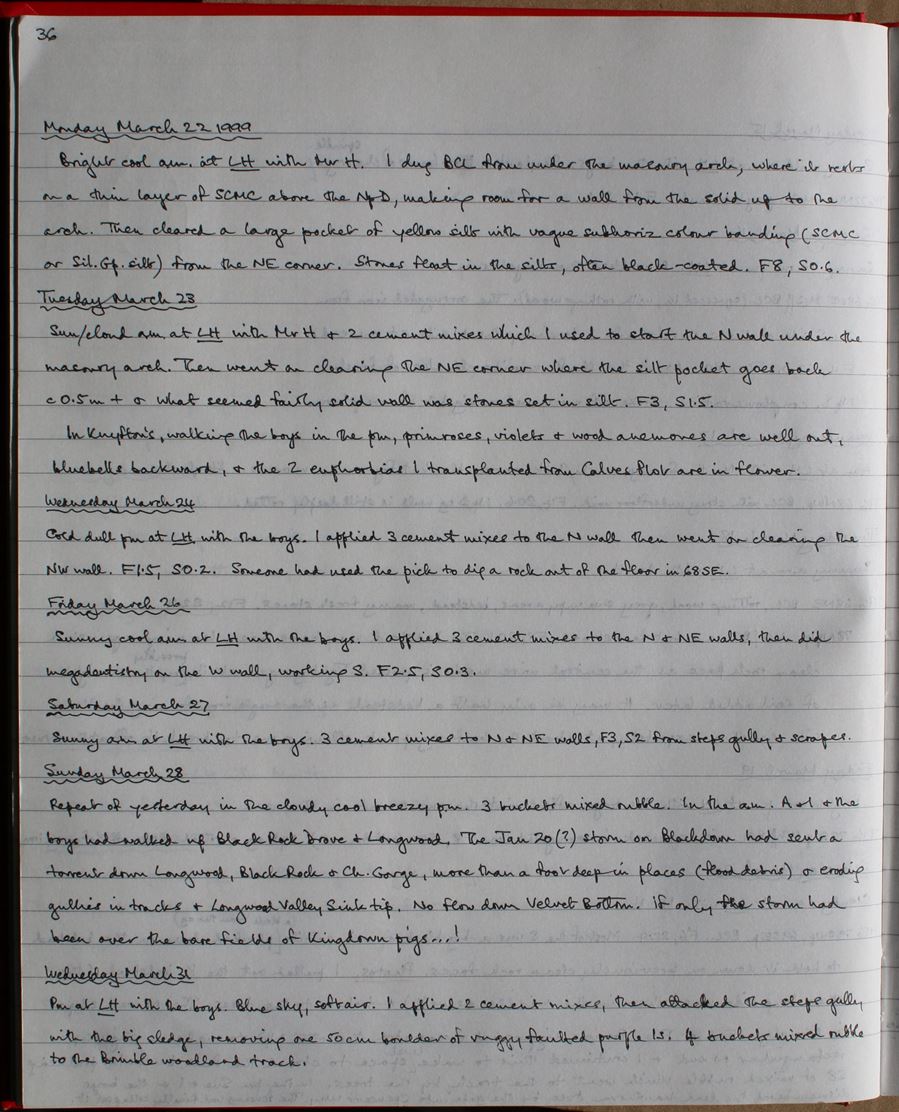 36
Monday March 22 1999
Bright cool am. at LH with Mr H. I dug BCL from under the masonry arch, where it rests
on a thin layer of SCMC above the NPD, making room for a wall from the solid up to the
arch. Then cleared a large pocket of yellow silt with vague subhoriz colour banding (SCMC
or Sil. Gp. silt) from the NE corner. Stones float in the silts, often black-coated. F8, S0.6.
Tuesday March 23
Sun/cloud am. at LH with Mr H + 2 cement mixes which I used to start the N wall under the
masonry arch. Then went on clearing the NE corner where the silt pocket goes back
c 0.5m + & what seemed fairly solid wall was stones set in silt. F3, S1.5.
In Knyfton's, walking the boys in the pm, primroses, violets & wood anemones are well out,
bluebells backward, & the 2 euphorbias I transplanted from Calves Plot are in flower.
Wednesday March 24
Cold dull pm at LH with the boys. I applied 3 cement mixes to the N wall then went on clearing the
NW wall. F1.5, S0.2. Someone had used the pick to dig a rock out of the floor in G8SE.
Friday March 26
Sunny cool am at LH with the boys. I applied 3 cement mixes to the N & NE walls, then did
megadentistry on the W wall, working S. F2.5, S0.3.
Saturday March 27
Sunny am at LH with the boys. 3 cement mixes to N & NE walls, F3, S2 from steps gully & scrapes.
Sunday March 28
Repeat of yesterday in the cloudy cool breezy pm. 3 buckets mixed rubble. In the am. A & I & the
boys had walked up Black Rock Drove & Longwood. The Jan 20(?) storm on Blackdown had sent a
torrent down Longwood, Black Rock & Ch. Gorge, more than a foot deep in places (flood debris) & eroding
gullies in tracks & Longwood Valley Sink tip. No flow down Velvet Bottom. If only the storm had
been over the bare fields of Kingdown pigs...!
Wednesday March 31
Pm at LH with the boys. Blue sky, soft air. I applied 2 cement mixes, then attacked the steps gully
with the big sledge, removing one 50cm boulder of vuggy faulted purple ls. 4 buckets mixed rubble
to the Brimble woodland track.